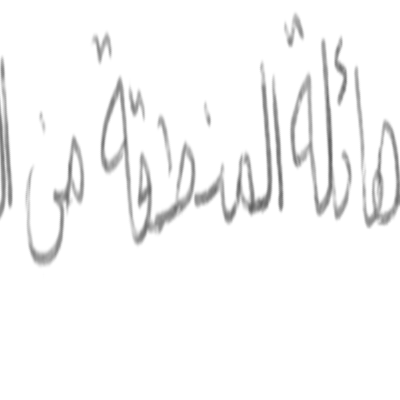 هائلة المنطقة من ال